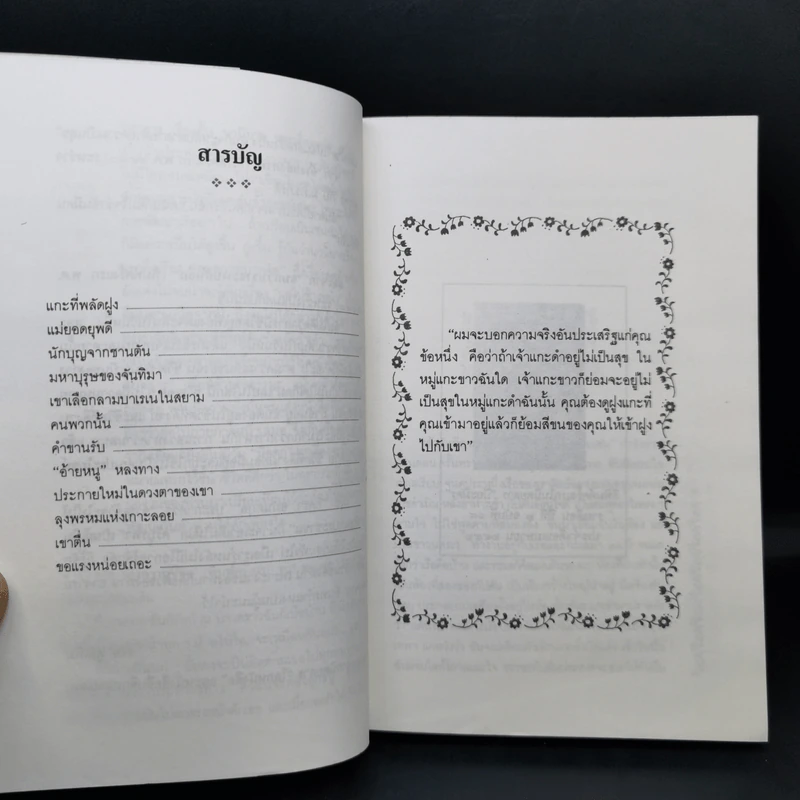 สารบัญ
แกะที่พลัดฝูง
แม่ยอดยุพดี
นักบุญจากซานตัน
มหาบุรุษของจันทิมา
เขาเลือกลามบาเรเนในสยาม
คนพวกนั้น
คำขานรับ
“อ้ายหนู” หลงทาง
ประกายใหม่ในดวงตาของเขา
ลุงพรหมแห่งเกาะลอย
เขาตื่น
ขอแรงหน่อยเถอะ
“ผมจะบอกความจริงอันประเสริฐแก่คุณ
ข้อหนึ่ง คือว่าถ้าเจ้าแกะดำอยู่ไม่เป็นสุข ใน
หมู่แกะขาวฉันใด เจ้าแกะขาวก็ย่อมจะอยู่ไม่
เป็นสุขในหมู่แกะดำฉันนั้น คุณต้องดูฝูงแกะที่
คุณเข้ามาอยู่แล้วก็ย้อมสีขนของคุณให้เข้าฝูง
ไปกับเขา”